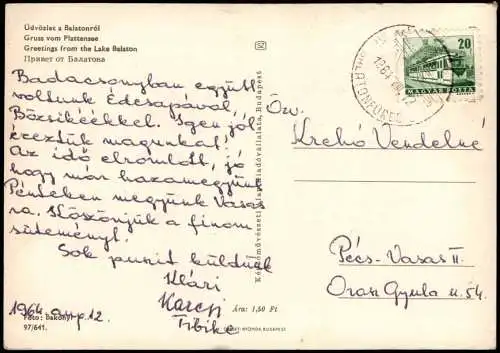 Üdvözlet a Balatonról
Gruss vom Plattensee
Greetings from the Lake Balaton
Привет от Балатона
Badacsonyban együtt
voltunk Édesapával,
Bözsikéékkel. Igen jól
éreztük magunkat!
Az idő elromlott, jó
hogy már hazamegyünk
Pénteken megyünk Vasas-
ra. Köszönjük a finom
süteményt!
Sok puszit küldünk
Klári
Karcsi
Tibike
1964 aug. 12.
Foto: Bakonyi
97/641.
Képzőművészeti Alap Kiadóvállalata, Budapest
Ára: 1,50 Ft
BUDAPEST
20
MAGYAR POSTA
Özv.
Krchó Vendelné
Pécs-Vasas II.
Orosz Gyula u. 54.